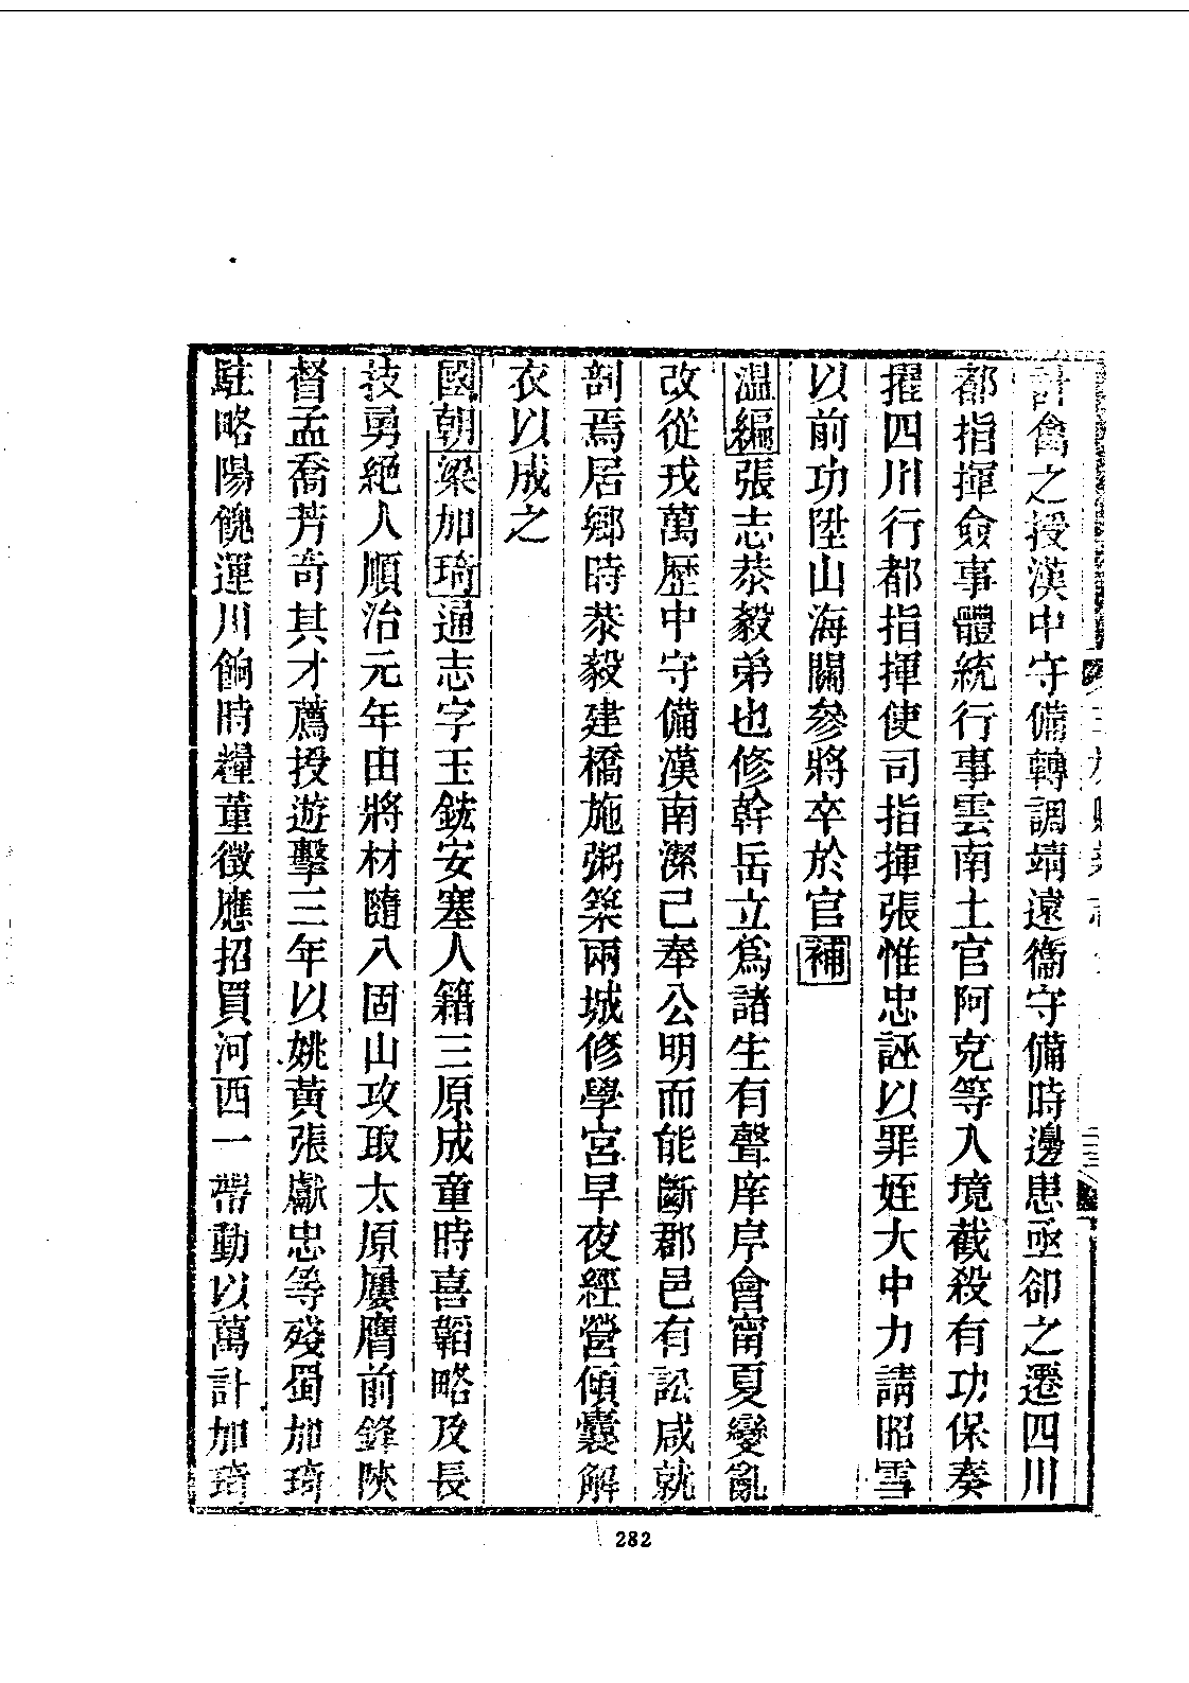 計禽之授漢中守備轉調靖遠衞守備時邊患亟卻之遷四川
都指揮僉事體統行事雲南土官阿克等入境截殺有功保奏
擢四川行都指揮使司指揮張惟忠誣以罪姪大中力請昭雪
以前功陞山海關參將卒於官補
温編張志恭毅弟也修幹岳立爲諸生有聲庠序會甯夏變亂
改從戎萬歷中守備漢南潔己奉公明而能斷郡邑有訟咸就
剖焉居鄉時恭毅建橋施粥築兩城修學宮早夜經營傾囊解
衣以成之
國朝梁加琦通志字玉鉉安塞人籍三原成童時喜韜略及長
技勇絕人順治元年由將材隨八固山攻取太原屢膺前鋒陝
督孟喬芳奇其才薦授遊擊三年以姚黃張獻忠等殘蜀加琦
駐略陽餽運川餉時糧草徵應招買河西一帶動以萬計加琦
282